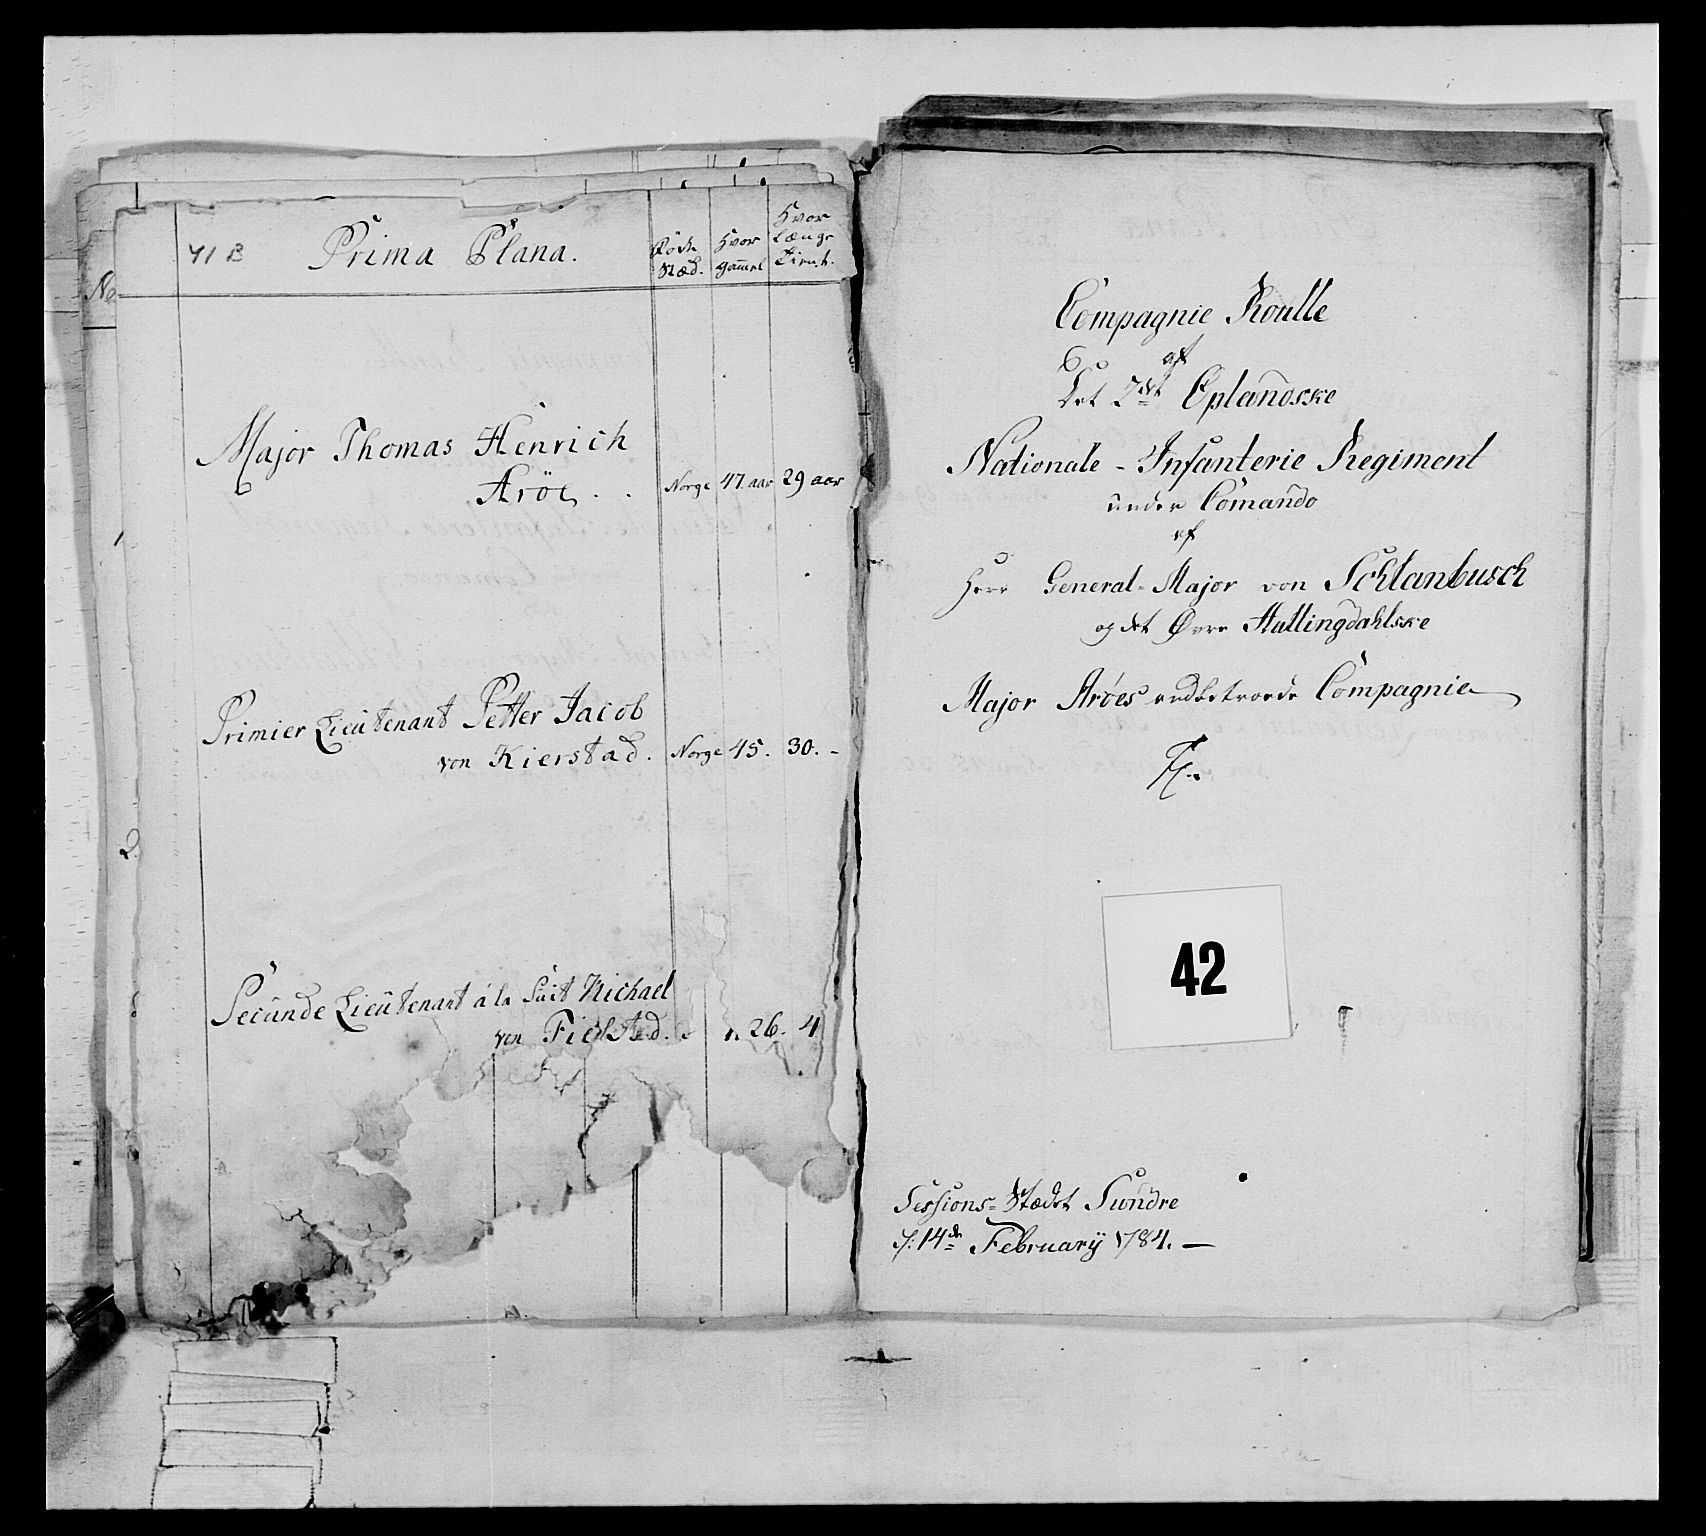 No
41 B
Prima Plana.
Föde
Stæd.
Hvor
gammel
Hvor
Længe
Tient.
Major Thomas Henrich
Aröe . .
Norge
47 aar
29 aar
2.
Primier Lieutenant Petter Jacob
von Kierstad.
Norge
45.
30. -
Secunde Lieutenant á la Suit Michael
von Fielsted.
26.
4
Compagnie Roulle
af
Det 2det Oplandsske
Nationale - Infanterie Regiment
under Comando
af
Herr General-Major von Schlanbusch
og det Øvre Hallingdahlske
Major Aröes andbetroede Compagnie
42
Sessions-Stædet Sundre
d: 14de February 1784. —